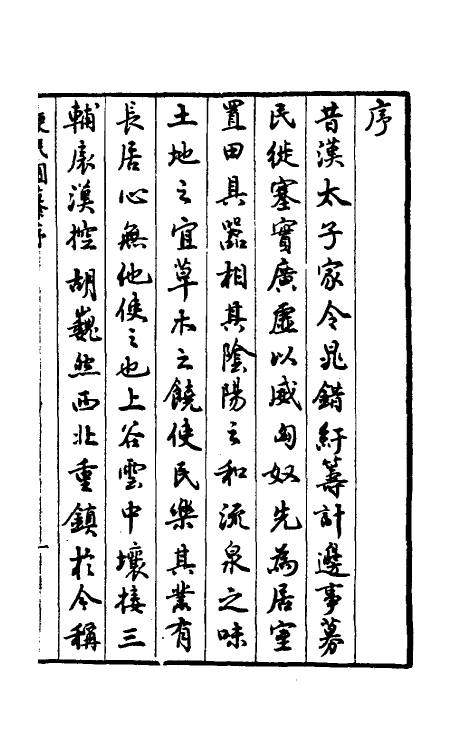 序
昔漢太子家令晁錯紆籌計邊事募
民徙塞實廣虛以威匈奴先為居室
置田具器相其陰陽之和流泉之味
土地之宜草木之饒使民樂其業有
長居心無他使之也上谷雲中壤接三
輔扆漠控胡巍然西北重鎮於今稱
便民圖纂序